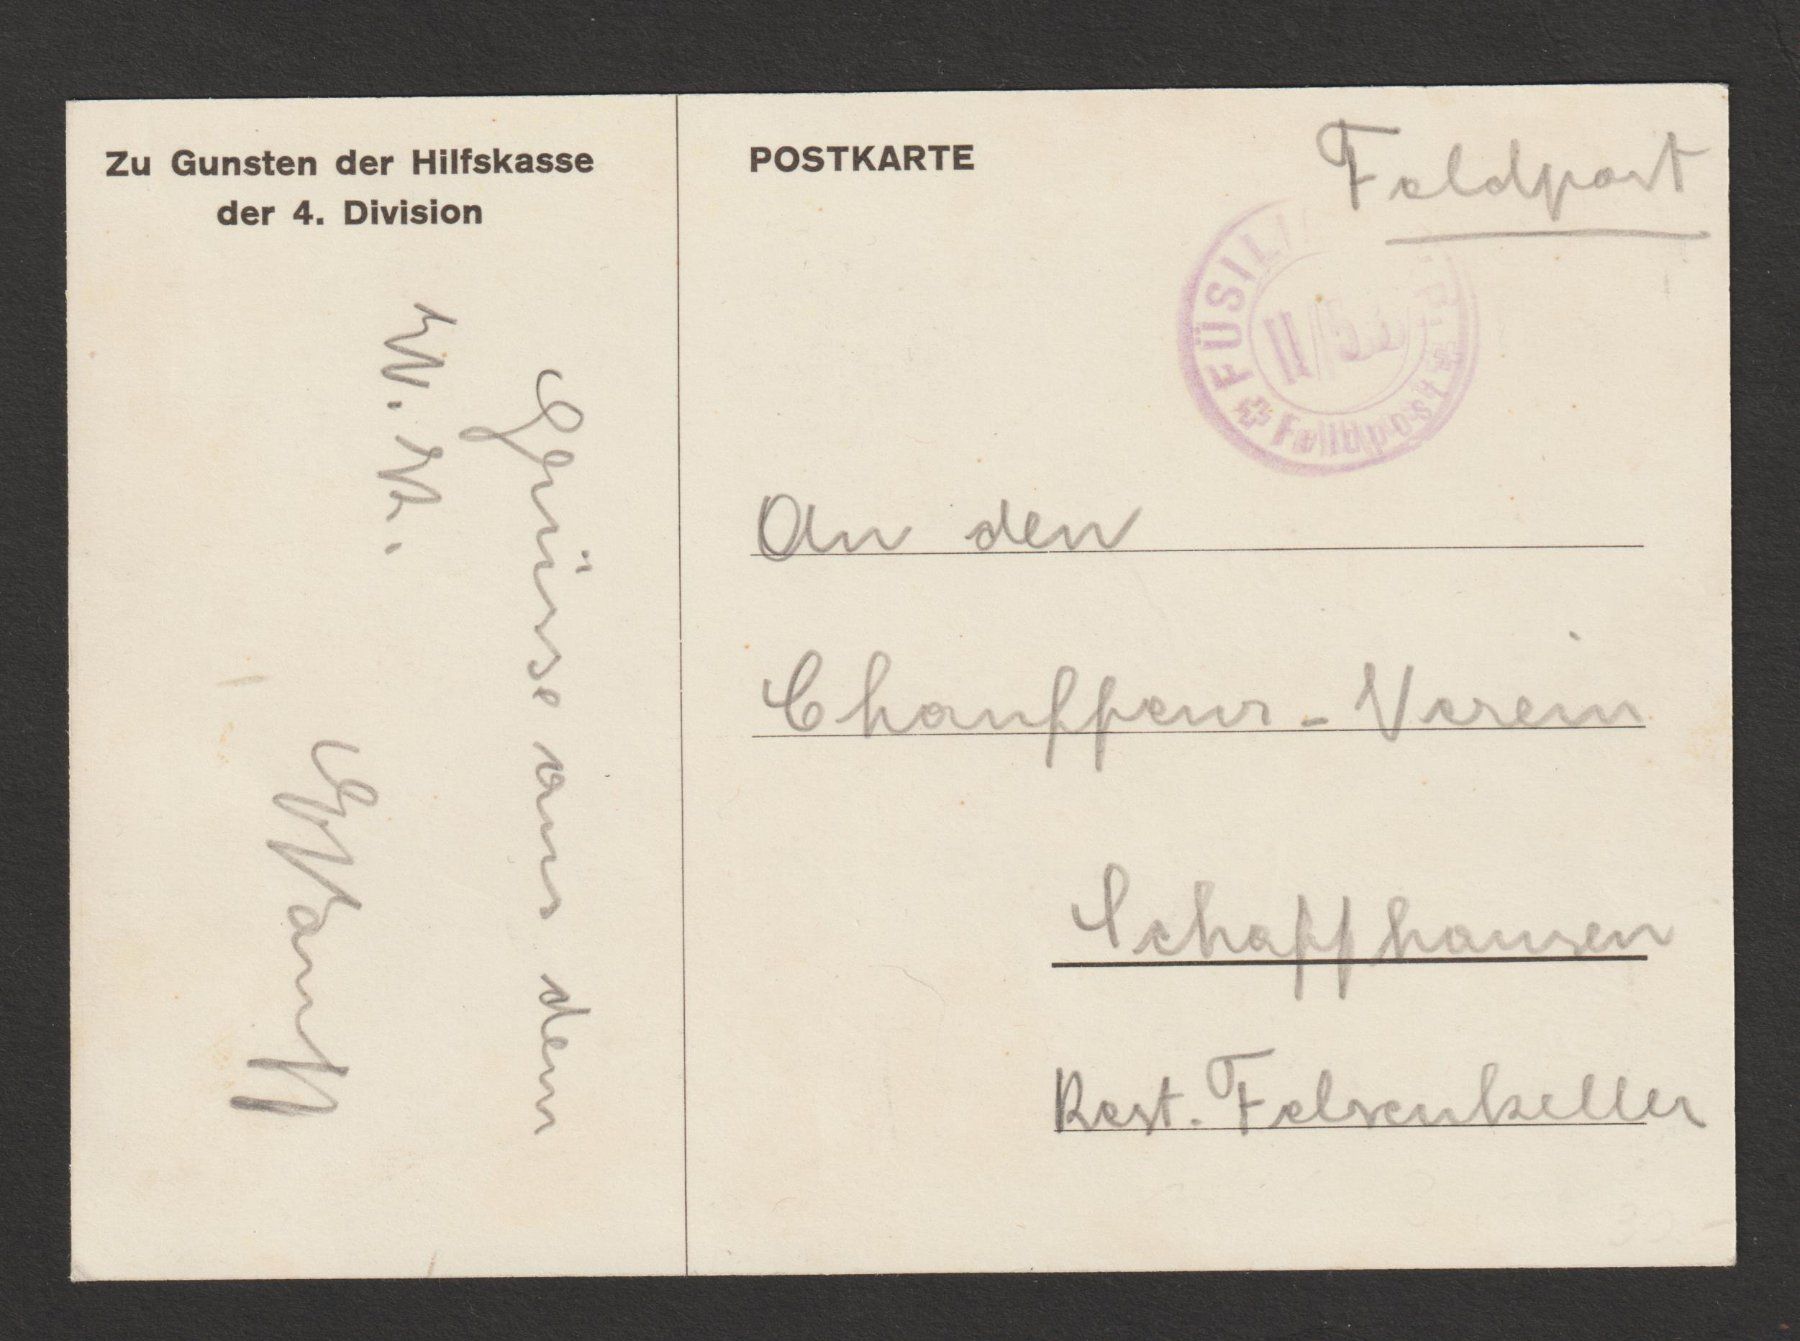 Zu Gunsten der Hilfskasse
der 4. Division
Grüsse aus dem
W. K.
POSTKARTE
Feldpost
FÜSILI
II/
Feldpost
An den
Chauffeur-Verein
Schaffhausen
Rest. Felsenkeller